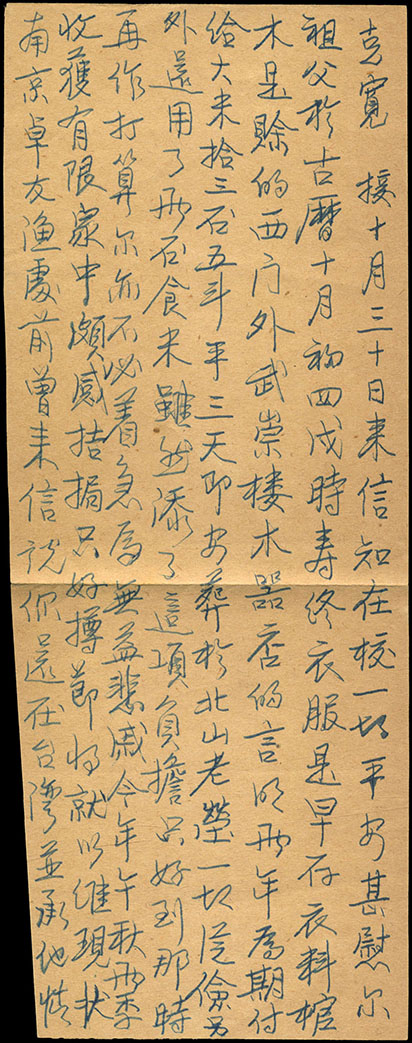 克寬 接十月三十日来信知在校一切平安甚慰尔
祖父於古曆十月初四戌時寿终衣服是早存衣料棺
木是賒的西门外武崇楼木器店的言明两年為期付
给大米拾三石五斗平三天即安葬於北山老塋一切從儉另
外還用了两石食米雖然添了這項負擔只好到那時
再作打算尔亦不必着急為無益悲戚今年午秋两季
收獲有限家中頗感拮据只好撙節将就以维現状
南京卓友渔處前曾来信説你還在台湾並承他情